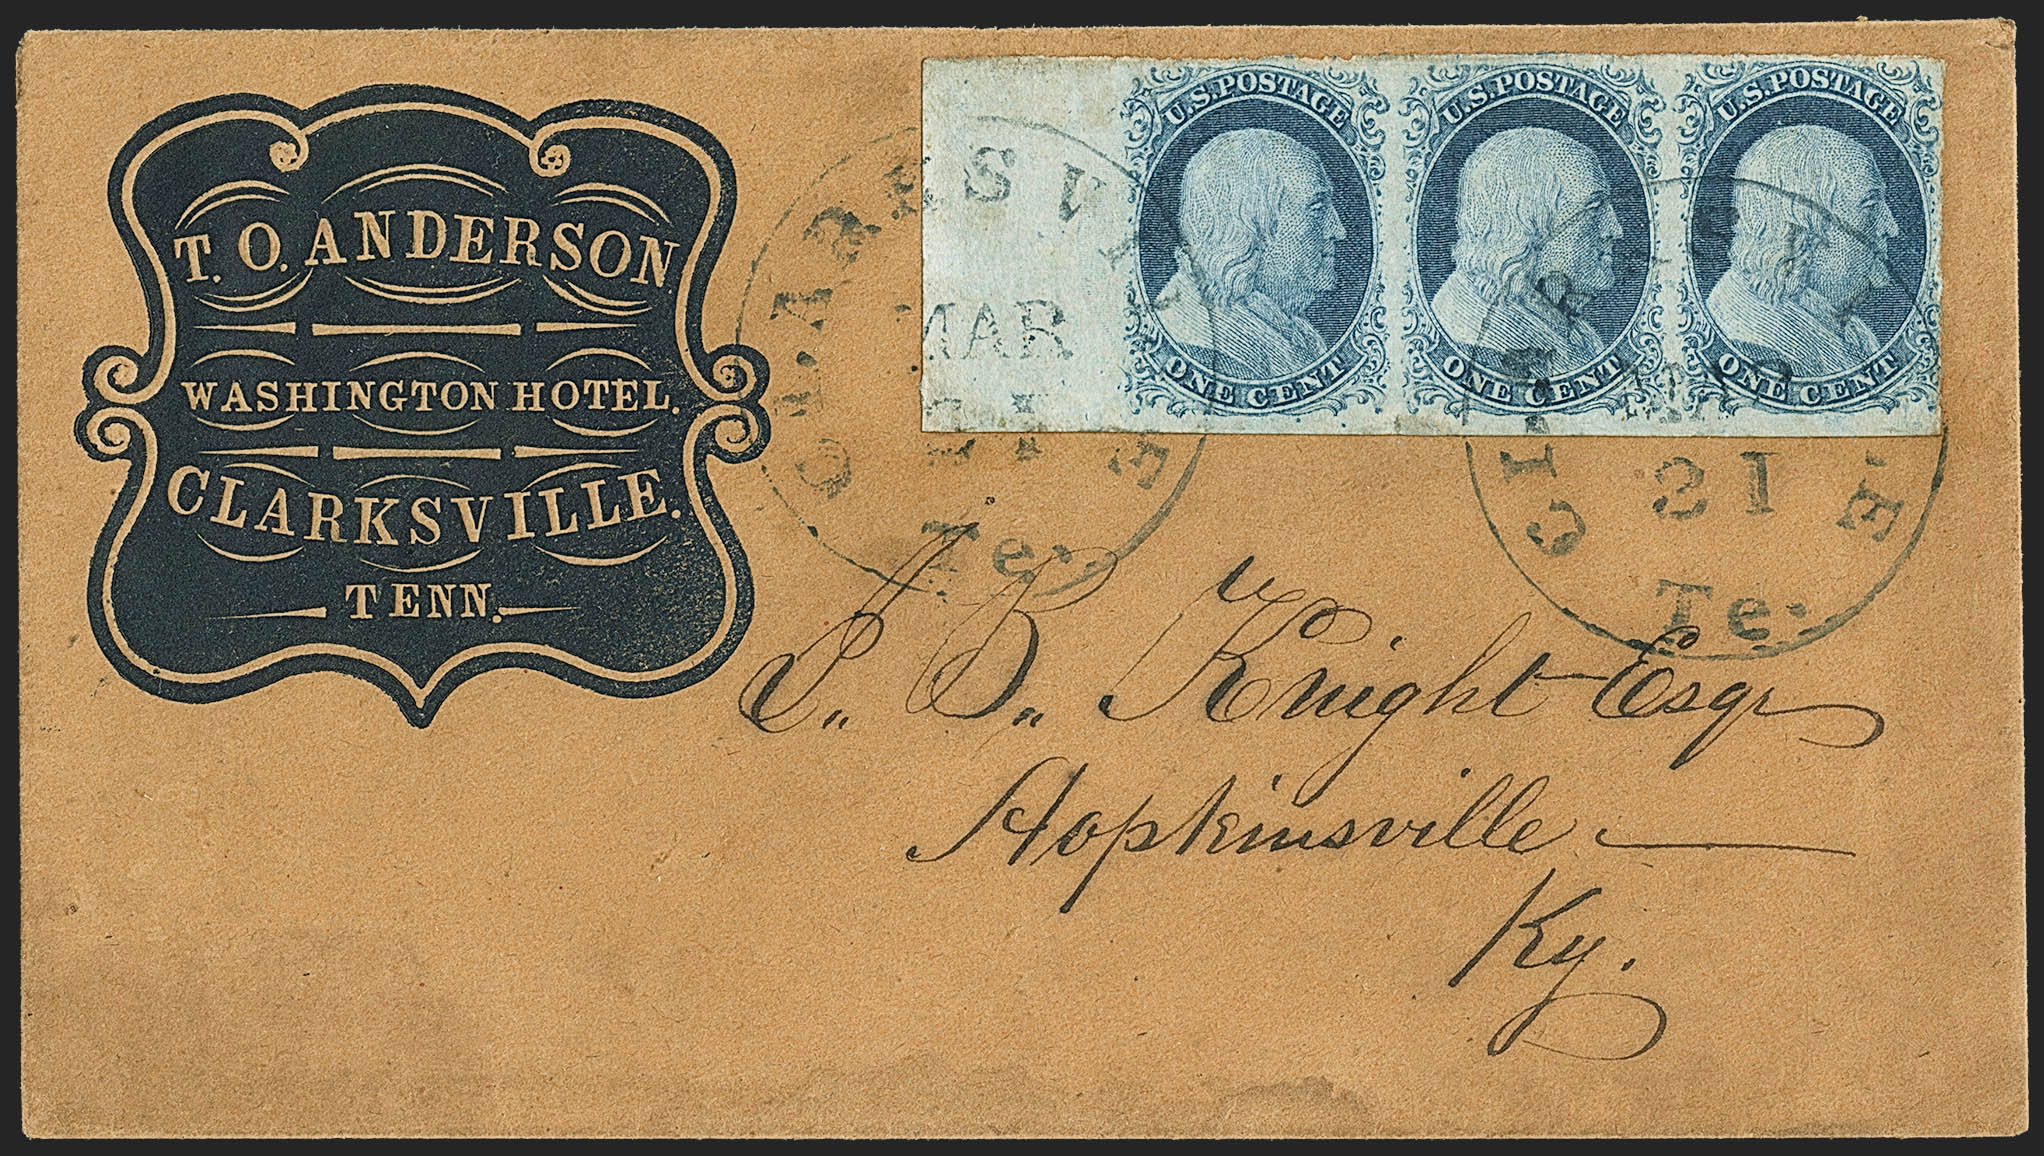 T. O. ANDERSON.
WASHINGTON HOTEL.
CLARKSVILLE.
TENN.
U.S. POSTAGE
ONE CENT
U.S. POSTAGE
ONE CENT
U.S. POSTAGE
ONE CENT
CLARKSVILLE
MAR
21
Te.
CLARKSVILLE
MAR
21
Te.
J. B. Knight Esqr
Hopkinsville
Ky.